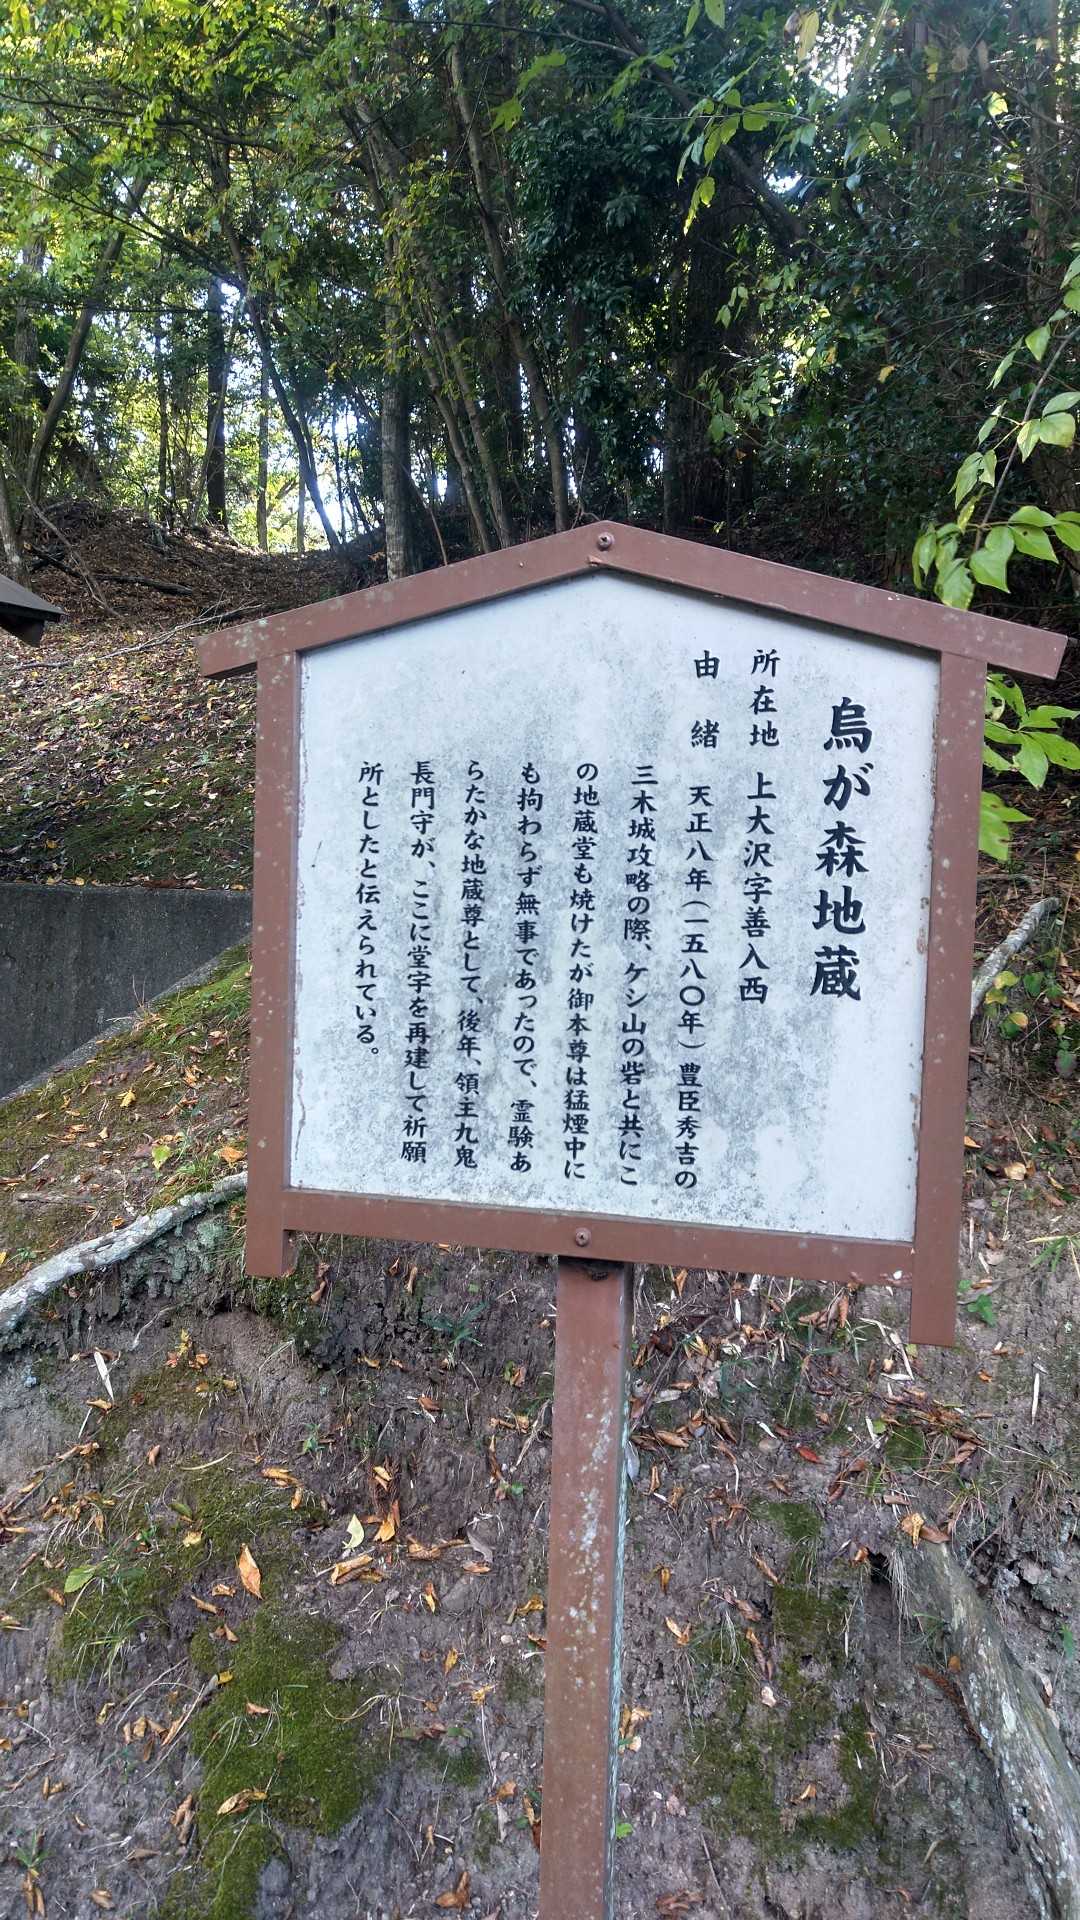 烏が森地蔵
所在地 上大沢字善入西
由緒 天正八年(一五八〇年)豊臣秀吉の
三木城攻略の際、ケシ山の砦と共にこ
の地蔵堂も焼けたが御本尊は猛煙中に
も拘わらず無事であったので、霊験あ
らたかな地蔵尊として、後年、領主九鬼
長門守が、ここに堂宇を再建して祈願
所としたと伝えられている。